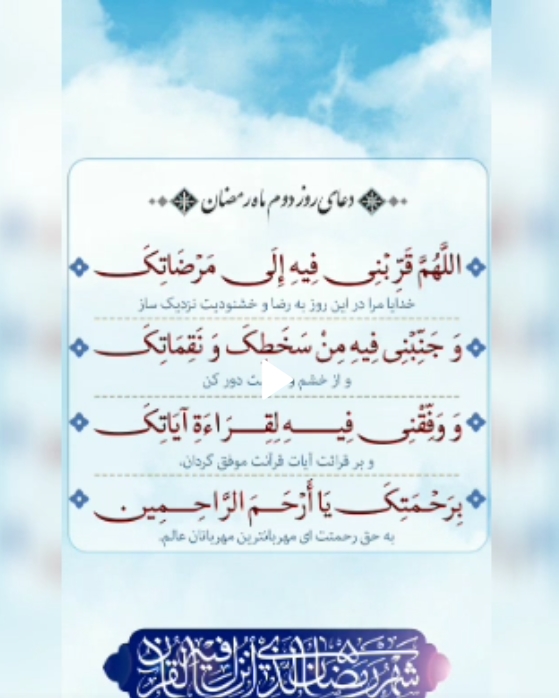 دعای روز دوم ماه رمضان
اللَّهُمَّ قَرِّبْنِی فِیهِ إِلَی مَرْضَاتِکَ
خدایا مرا در این روز به رضا و خشنودیت نزدیک ساز
وَ جَنِّبْنِی فِیهِ مِنْ سَخَطِکَ وَ نَقِمَاتِکَ
و از خشم و دور کن
وَ وَفِّقْنِی فِیهِ لِقِرَاءَةِ آیَاتِکَ
و بر قرائت آیات قرآنت موفق گردان،
بِرَحْمَتِکَ یَا أَرْحَمَ الرَّاحِمِین
به حق رحمتت ای مهربانترین مهربانان عالم.
شهر رمضان الذی انزل فیه القرآن